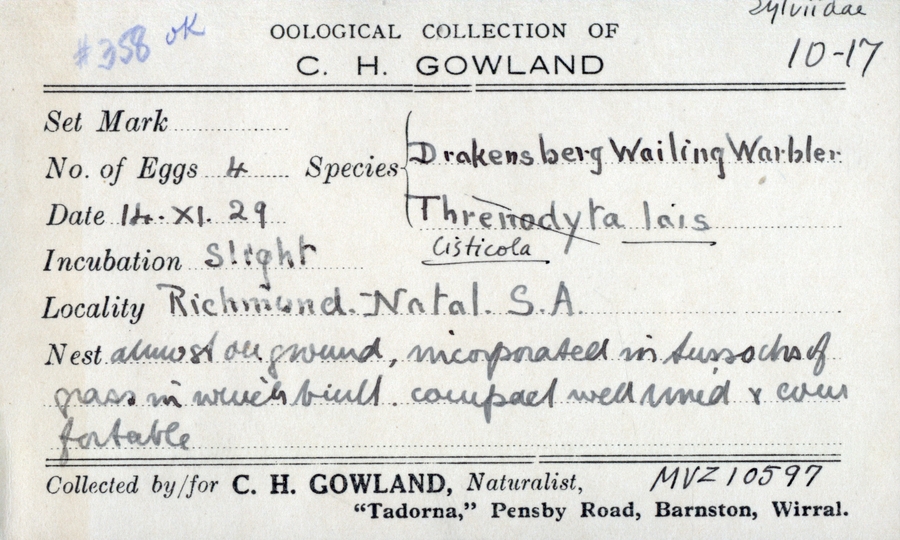 Sylviidae
#358 OK
OOLOGICAL COLLECTION OF
10-17
C. H. GOWLAND
Set Mark
No. of Eggs 4 Species Drakensberg Wailing Warbler
Date 14. XI. 29 Threnodyta lais
Cisticola
Incubation Slight
Locality Richmond. Natal. S.A.
Nest almost on ground, incorporated in tussocks of
grass in which built. compact well lined & com
fortable
Collected by/for C. H. GOWLAND, Naturalist, MVZ 10597
"Tadorna," Pensby Road, Barnston, Wirral.